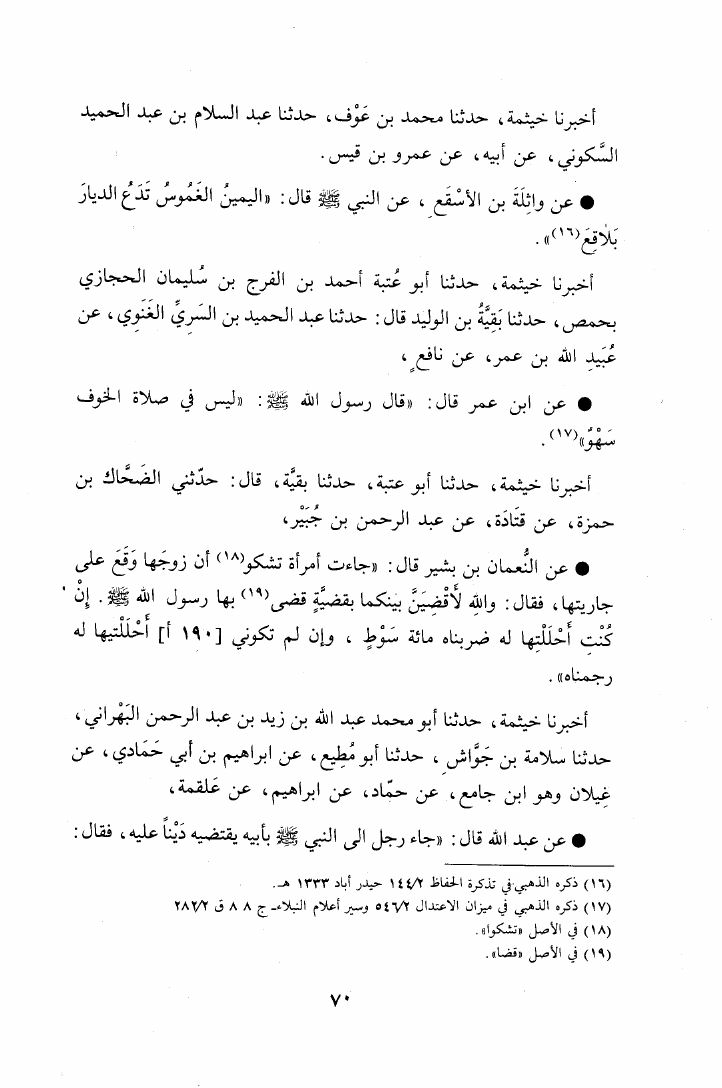 أخبرنا خيثمة، حدثنا محمد بن عَوْف، حدثنا عبد السلام بن عبد الحميد
السَّكوني، عن أبيه، عن عمرو بن قيس.
● عن واثِلَةَ بن الأسْقَعِ، عن النبي ﷺ قال: «اليمينُ الغَمُوسُ تَدَعُ الديارَ
بَلاقِعَ(١٦)».
أخبرنا خيثمة، حدثنا أبو عُتبة أحمد بن الفرج بن سُليمان الحجازي
بحمص، حدثنا بَقِيَّةُ بن الوليد قال: حدثنا عبد الحميد بن السَريِّ الغَنَوي، عن
عُبَيدِ الله بن عمر، عن نافعٍ،
● عن ابن عمر قال: «قال رسول الله ﷺ: «ليس في صلاة الخوف
سَهْوٌ»(١٧).
أخبرنا خيثمة، حدثنا أبو عتبة، حدثنا بقيَّة، قال: حدّثني الضَحَّاك بن
حمزة، عن قتَادَة، عن عبد الرحمن بن جُبَيْر،
● عن النُّعمان بن بشير قال: «جاءت أمرأة تشكو(١٨) أن زوجَها وَقَعَ على
جاريتها، فقال: واللهِ لَأقْضِيَنَّ بينكما بقضيَّةٍ قضى(١٩) بها رسول الله ﷺ. إنْ
كُنْتِ أَحْلَلْتِها له ضربناه مائة سَوْطٍ، وإن لم تكوني [١٩٠ أ] أَحْلَلْتيها له
رجمناه».
أخبرنا خيثمة، حدثنا أبو محمد عبد الله بن زيد بن عبد الرحمن البَهْراني،
حدثنا سلامة بن جَوَّاشٍ، حدثنا أبو مُطيع، عن ابراهيم بن أبي حَمَادي، عن
غِيلان وهو ابن جامع، عن حمّاد، عن ابراهيم، عن عَلقمة،
● عن عبد الله قال: «جاء رجل الى النبي ﷺ بأبيه يقتضيه دَيْناً عليه، فقال:
(١٦) ذكره الذهبي في تذكرة الحفاظ ١٤٤/٢ حيدر أباد ١٣٣٣ هـ.
(١٧) ذكره الذهبي في ميزان الاعتدال ٥٤٦/٢ وسير أعلام النبلاءـ ج ٨ ٨ ق ٢٨٢/٢
(١٨) في الأصل «تشكوا».
(١٩) في الأصل «قضا».
٧٠